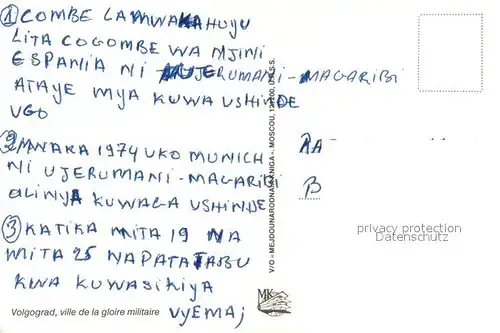 ① COMBE LA MWAKA HUYU
LITA COGOMBE WA MJINI
ESPANIA NI UJERUMANI - MAGARIBI
ATAYE MYA KUWA USHINDE
VGO
② MWAKA 1974 UKO MUNICH
NI UJERUMANI - MAGARIBI
OLINYA KUWAGA USHINDE
③ KATIKA MITA 19 NA
MITA 25 NAPATA TABU
KWA KUWASIKIYA
VYEMA;
Volgograd, ville de la gloire militaire
V/O «MEJDOUNARODNAYA KNIGA», MOSCOU, 121200, U.R.S.S.
MK
RA
B
privacy protection
Datenschutz